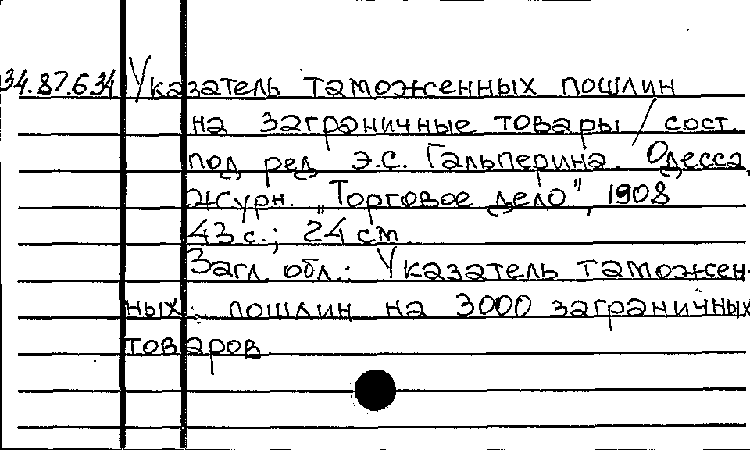 34.87.634 Указатель таможенных пошлин
на заграничные товары / сост.
под ред. Э.С. Гальперина. Одесса,
журн. „Торговое дело", 1908
43 с.; 24 cm.
Загл. обл.: Указатель таможен-
ных пошлин на 3000 заграничных
товаров